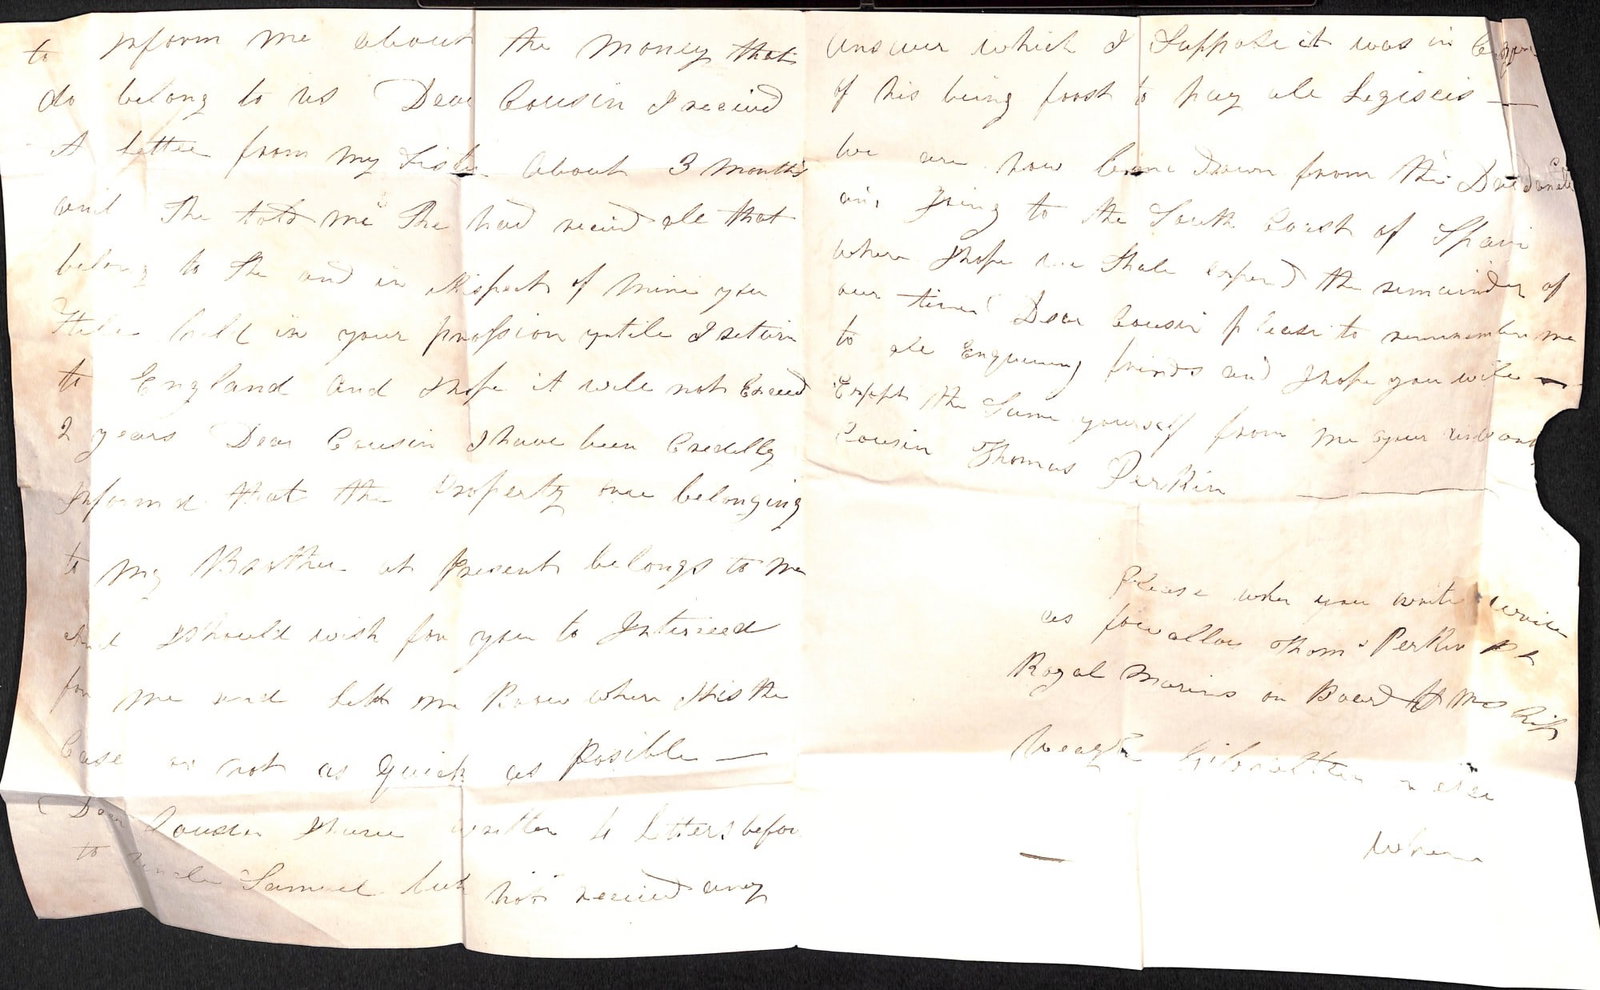 to inform me about the money that
do belong to us Dear Cousin I recived
A letter from my Sister about 3 months
and She told me She had recivd all that
belong to She and in Respect of mine you
hold in your possion untile I return
to England and I hope it will not Exceed
2 years Dear Cousin I have been Credilly
Informd that the Property once belonging
to my Brother at Present belongs to me
and I Should wish for you to Interceed
for me and lett me know when this the
Case or not as Quick as Posible —
Dear Cousin I have written 4 letters before
to Uncle Samuel but not recived any
answer which I Suppose it was in
of his being forst to pay all Legiseis —
we are now Come Down from the
and going to the South Coast of Spain
where I hope we Shall Expend the remainder of
our time Dear Cousin please to rememember me
to all Enquiring friends and I hope you will —
Except the Same yourself from me your
Cousin Thomas Perkin —
Please when you write
as fowallow Thoms Perkin
Royal Marins on Board H Ms Ship
Gibraltar or else
where